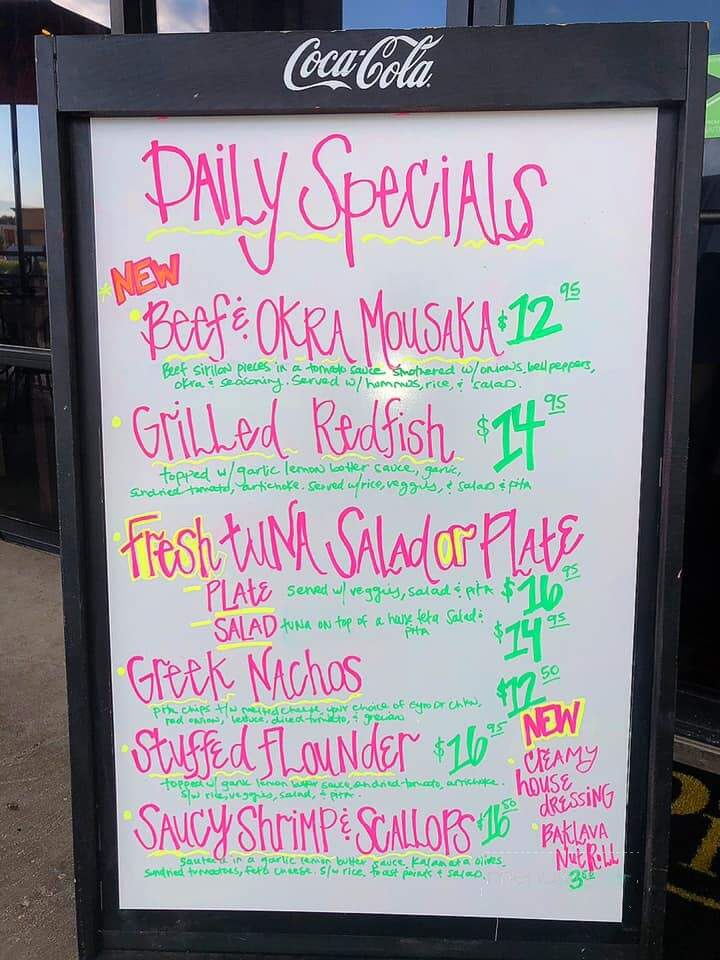 Coca-Cola
DAiLy SpeciALS
*NEW
• Beef & OKRA MOUSAKA $12 95
Beef sirilon pieces in a tomato sauce smothered w/ onions, bell peppers,
okra & seasoning. Served w/ hummus, rice, & salad.
• Grilled Redfish $14 95
topped w/ garlic lemon butter sauce, garlic,
sundried tomato, artichoke. Served w/ rice, veggys, & salad & pita
• Fresh tuNA SALAd or PlAtE
- PLAtE served w/ veggys, salad & pita $16 95
- SALAD tuna on top of a house feta Salad & pita $14 95
• Greek NAchos $12 50
pita chips t/w melted cheese, your choice of Gyro Or Chkn,
red onion, lettuce, diced tomato, & grecian
• Stuffed flouNder $16 95
topped w/ garlic lemon butter sauce, sundried tomato, artichoke.
S/w rice, veggys, salad, & pita.
• SAUCY ShriMP & SCALLOPS $16 50
sauteed in a garlic lemon butter sauce Kalamata olives
sundried tomatoes, feta cheese. S/w rice, toast points & salad.
NEW
• CREAMY
house
dressing
• BAKLAVA
Nut Roll
3 50